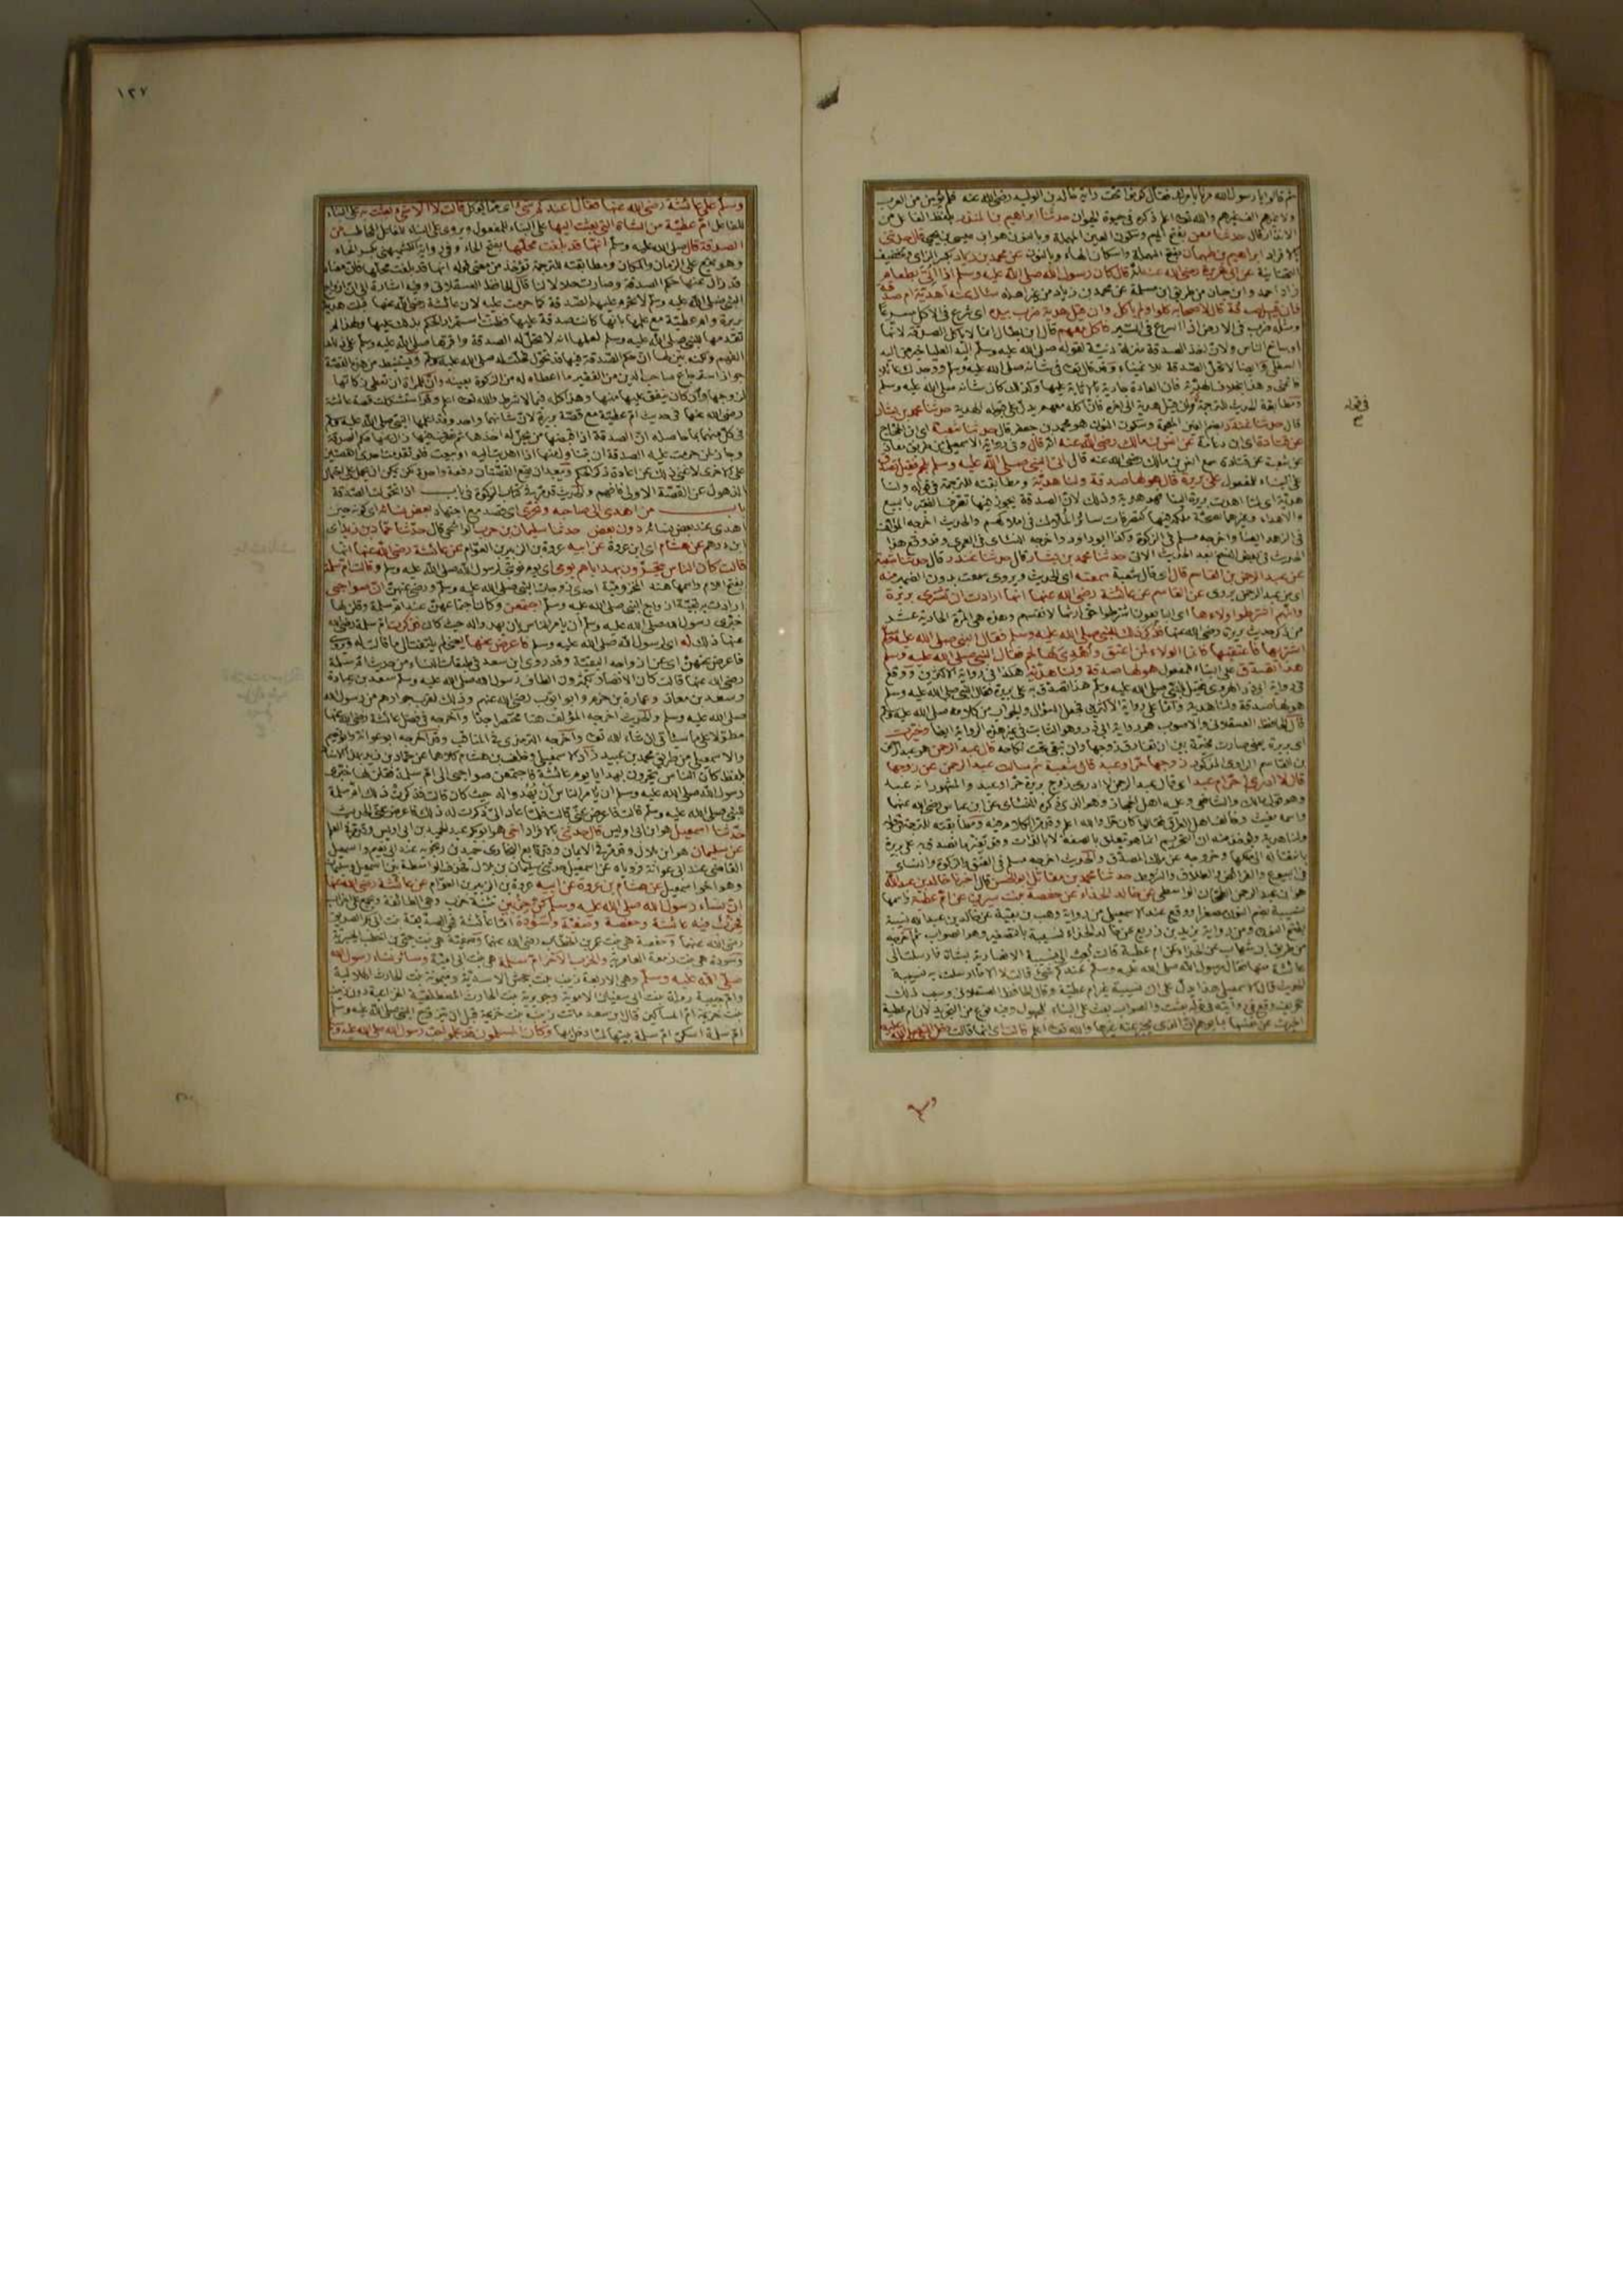 ثم قالوا يا رسول الله مرنا بأمرك فقال كونوا تحت راية خالد بن الوليد رضي الله عنه
ولا غيرهم والله تعالى اعلم ذكره في حيوة الحيوان حدثنا ابراهيم بن المنذر بلفظ الفاعل من
الانذار قال حدثنا معن بفتح الميم وسكون العين المهملة وبالنون هو ابن عيسى بن يحيى قال حدثني
بالافراد ابراهيم بن طهمان بفتح المهملة واسكان الهاء وبالنون عن محمد بن زياد بكسر الزاى وتخفيف
التحتانية عن ابي هريرة رضي الله عنه قال كان رسول الله صلى الله عليه وسلم اذا اتى بطعام
زاد احمد وابن حبان من طريق ابن سلمة عن محمد بن زياد من غير اهله سال عنه أهدية ام صدقة
فان قيل صدقة قال لاصحابه كلوا ولم يأكل وان قيل هدية ضرب بيده اى شرع في الاكل مسرعا
ومثله ضرب في الارض اذا اسرع في السير فاكل معهم قال ابن بطال انما لا ياكل الصدقة لانها
اوساخ الناس ولان اخذ الصدقة منزلة دنية لقوله صلى الله عليه وسلم اليد العليا خير من اليد
السفلى وايضا لا تحل الصدقة للاغنياء وقد قال تعالى في شانه صلى الله عليه وسلم ووجدك عائلا
فاغنى وهذا بخلاف الهدية فان العادة جارية بالاثابة عليها وكذلك كان شانه صلى الله عليه وسلم
ومطابقة الحديث للترجمة وان قيل هدية الى اخره فان اكله معهم يدل على قبوله الهدية حدثنا محمد بن بشار
قال حدثنا غندر بضم الغين المعجمة وسكون النون هو محمد بن جعفر قال حدثنا شعبة اى ابن الحجاج
عن قتادة اى ابن دعامة عن انس بن مالك رضي الله عنه انه قال وفي رواية الاسمعيلي من طريق معاذ
عن شعبة عن قتادة سمع انس بن مالك رضي الله عنه قال اتى النبي صلى الله عليه وسلم بلحم فقيل تصدق
على البناء للمفعول على بريرة قال هو لها صدقة ولنا هدية ومطابقته للترجمة في قوله ولنا
هدية اى لنا اهدت بريرة الينا فهو هدية وذلك لان الصدقة يجوز فيها تصرف الفقير بالبيع
والاهداء وغيرهما لصحة ملكه فيها كتصرفات سائر الملاك في املاكهم والحديث اخرجه المؤلف
في الزهد ايضا واخرجه مسلم في الزكوة وكذا ابو داود واخرجه النسائى في العمرى وقد وقع هذا
الحديث في بعض النسخ بعد الحديث الاتى حدثنا محمد بن بشار قال حدثنا غندر قال حدثنا شعبة
عن عبد الرحمن بن القاسم قال اى قال شعبة سمعته اى الحديث ويروى سمعت بدون الضمير منه
اى من عبد الرحمن يروى عن القاسم عن عائشة رضي الله عنها انها ارادت ان تشترى بريرة
وانهم اشترطوا ولاءها اى البايعون اشترطوا حق ارثها لانفسهم وهذه هى المرة الحادية عشر
من ذكر حديث بريرة رضي الله عنها فذكر ذلك للنبي صلى الله عليه وسلم فقال النبي صلى الله عليه وسلم
اشتريها فاعتقيها فانما الولاء لمن اعتق واهدى لها لحم فقال النبي صلى الله عليه وسلم
هذا تصدق على البناء للمفعول هو لها صدقة ولنا هدية هكذا في رواية الاكثرين ووقع
في رواية ابي ذر الهروى فقيل للنبي صلى الله عليه وسلم هذا تصدق به على بريرة فقال النبي صلى الله عليه وسلم
هو لها صدقة ولنا هدية واما على رواية الاكثرين فجعل السؤال والجواب من كلامه صلى الله عليه وسلم
قال الحافظ العسقلاني والاصوب هو رواية ابي ذر وهو الثابت في غير هذه الرواية ايضا وخيرت
اى بريرة يعنى صارت مخيرة بين ان تفارق زوجها وان تبقى تحت نكاحه قال عبد الرحمن هو عبد الرحمن
بن القاسم الراوى المذكور زوجها حر او عبد قال شعبة ثم سالت عبد الرحمن عن زوجها
قال لا ادرى احر ام عبد اى قال عبد الرحمن لا ادرى زوج بريرة حر او عبد والمشهور انه عبد
وهو قول مالك والشافعي وعليه اهل الحجاز وهو الذى ذكره النسائى عن ابن عباس رضي الله عنهما
واسمه مغيث وخالف اهل العراق فقالوا كان حرا والله اعلم وقد مر الكلام فيه ومطابقته للترجمة في قوله
ولنا هدية ويؤخذ منه ان التحريم انما هو يتعلق بالصفة لا بالذات وقد تغير ما تصدق به على بريرة
بانتقاله الى ملكها وخروجه عن ملك المتصدق والحديث اخرجه مسلم في العتق والزكوة والنسائى
في البيوع والفرائض والطلاق والشروط حدثنا محمد بن مقاتل ابو الحسن قال اخبرنا خالد بن عبد الله
هو ابن عبد الرحمن الطحان الواسطي عن خالد الحذاء عن حفصة بنت سيرين عن ام عطية واسمها
نسيبة بضم النون مصغرا ووقع عند الاسمعيلي من رواية وهب بن بقية عن خالد بن عبد الله نسيبة
بفتح النون ومن رواية يزيد بن زريع عن خالد الحذاء نسيبة بالتصغير وهو الصواب ثم اخرجه
من طريق ابن شهاب عن الحذاء عن ام عطية قالت بعث الى نسيبة الانصارية بشاة فارسلت الى
عائشة منها فقال رسول الله صلى الله عليه وسلم عندكم شئ قالت لا الا ما ارسلت به نسيبة
الحديث قال الاسمعيلي هذا يدل على ان نسيبة غير ام عطية وقال الحافظ العسقلاني وسبب ذلك
تحريف وقع في روايته في قوله بعثت والصواب بعث على البناء للمجهول وفيه نوع من التجريد لان ام عطية
اخبرت عن نفسها بما يوهم ان الذى تخبر عنه غيرها والله تعالى اعلم قالت اى انها قالت دخل النبي صلى الله عليه
في قوله
صح
وسلم
١٢٧
وسلم على عائشة رضي الله عنها فقال اعندكم شئ اى مما يؤكل قالت لا الا شئ بعثت به على البناء
للفاعل ام عطية من الشاة التى بعثت اليها على البناء للمفعول ويروى على البناء للفاعل المخاطب من
الصدقة قال صلى الله عليه وسلم انها قد بلغت محلها بفتح الحاء وفي رواية الكشميهنى بكسر الحاء
وهو يقع على الزمان والمكان ومطابقته للترجمة تؤخذ من معنى قوله انها قد بلغت محلها فان معناه
قد زال عنها حكم الصدقة وصارت حلالا لنا قال الحافظ العسقلاني وفيه اشارة الى ان ازواج
النبي صلى الله عليه وسلم لا تحرم عليهن الصدقة كما حرمت عليه لان عائشة رضي الله عنها قبلت هدية
بريرة وام عطية مع علمها بانها كانت صدقة عليهما وظنت استمرار الحكم بذلك عليها ولهذا لم
تقدمها للنبي صلى الله عليه وسلم لعلمها انه لا تحل له الصدقة واقرها صلى الله عليه وسلم على ذلك
الفهم ولكنه بين لها ان حكم الصدقة فيها قد تحول فحلت له صلى الله عليه وسلم ويستنبط من هذه القصة
جواز استرجاع صاحب الدين من الفقير ما اعطاه له من الزكوة بعينه وان للمرأة ان تعطى زكاتها
لزوجها ولو كان ينفق عليها منها وهذا كله فيما لا شرط والله تعالى اعلم وقد استشكلت قصة عائشة
رضي الله عنها في حديث ام عطية مع قصة بريرة لان شانهما واحد وقد اعلمها النبي صلى الله عليه وسلم
في كل منهما بما حاصله ان الصدقة اذا قبضها من يحل له اخذها ثم تصرف فيها زال عنها حكم الصدقة
وجاز لمن حرمت عليه الصدقة ان يتناول منها اذا اهديت اليه او بيعت فلو تقدمت احدى القصتين
على الاخرى لاغنى ذلك عن اعادة ذكر الحكم ويبعد ان تقع القصتان دفعة واحدة
الذهول عن القصة الاولى فافهم والحديث قد مر في كتاب الزكوة في باب اذا تحولت الصدقة
باب من اهدى الى صاحبه وتحرى اى قصد مع اجتهاد بعض نسائه اى كونه حين
اهدى عند بعض نسائه دون بعض حدثنا سليمان بن حرب الواشحي قال حدثنا حماد بن زيد اى
ابن درهم عن هشام اى ابن عروة عن ابيه عروة بن الزبير بن العوام عن عائشة رضي الله عنها انها
قالت كان الناس يتحرون بهداياهم يومى اى يوم نوبتى لرسول الله صلى الله عليه وسلم وقالت ام سلمة
بفتح اللام واسمها هند المخزومية احدى زوجات النبي صلى الله عليه وسلم ورضي عنهن ان صواحبى
ارادت به بقية ازواج النبي صلى الله عليه وسلم اجتمعن وكان اجتماعهن عند ام سلمة وقلن لها
خبرى رسول الله صلى الله عليه وسلم ان يامر الناس بان يهدوا له حيث كان فذكرت ام سلمة رضي الله
عنها ذلك له اى لرسول الله صلى الله عليه وسلم فاعرض عنها يعنى لم يلتفت الى ما قالت له ويروى
فاعرض عنهن اى عن ازواجه البقية وقد روى ابن سعد في طبقات النساء من حديث ام سلمة
رضي الله عنها قالت كان الانصار يكثرون الطاف رسول الله صلى الله عليه وسلم سعد بن عبادة
وسعد بن معاذ وعمارة بن حزم وابو ايوب رضي الله عنهم وذلك لقرب جوارهم من رسول الله
صلى الله عليه وسلم والحديث اخرجه المؤلف هنا مختصرا جدا واخرجه في فضل عائشة رضي الله عنها
مطولا على ما سياتى ان شاء الله تعالى واخرجه الترمذى في المناقب وقد اخرجه ابو عوانة وابو نعيم
والاسمعيلي من طريق محمد بن عبيد زاد الاسمعيلي وخلف بن هشام كلاهما عن حماد بن زيد بهذا الاسناد
بلفظ كان الناس يتحرون بهداياهم يوم عائشة فاجتمعن صواحبى الى ام سلمة فقلن لها خبرى
رسول الله صلى الله عليه وسلم ان يامر الناس ان يهدوا له حيث كان قالت فذكرت ذلك ام سلمة
للنبي صلى الله عليه وسلم قالت فاعرض عنى قالت فلما عاد الى ذكرت له ذلك فاعرض عنى الحديث
حدثنا اسمعيل هو ابن ابى اويس قال حدثنى بالافراد اخى هو ابو بكر عبد الحميد بن ابى اويس
عن سليمان هو ابن بلال وقد مر في الايمان وقد تابع البخارى حميد بن زنجويه عند ابى نعيم واسمعيل
القاضي عند ابي عوانة فروياه عن اسمعيل حدثنى سليمان بن بلال بحذف الواسطة بين اسمعيل وسليمان
وهو اخو اسمعيل عن هشام بن عروة عن ابيه عروة بن الزبير بن العوام عن عائشة رضي الله عنها
ان نساء رسول الله صلى الله عليه وسلم كن حزبين تثنية حزب وهى الطائفة ويجمع على احزاب
فحزب فيه عائشة وحفصة وصفية وسودة اما عائشة فهى الصديقة بنت ابى بكر الصديق
رضي الله عنهما وحفصة هى بنت عمر بن الخطاب رضي الله عنهما وصفية هى بنت حيى بن اخطب الخيبرية
وسودة هى بنت زمعة العامرية والحزب الآخر ام سلمة هى بنت ابى امية وسائر نساء رسول الله
صلى الله عليه وسلم وهى الاربعة زينب بنت جحش الاسدية وميمونة بنت الحارث الهلالية
وام حبيبة رملة بنت ابى سفيان الاموية وجويرية بنت الحارث المصطلقية الخزاعية دون زينب
بنت خزيمة ام المساكين قال ابن سعد ماتت زينب بنت خزيمة قبل ان يتزوج النبي صلى الله عليه وسلم
ام سلمة اسكن ام سلمة بيتها لما دخل بها وكان المسلمون قد علموا حب رسول الله صلى الله عليه وسلم